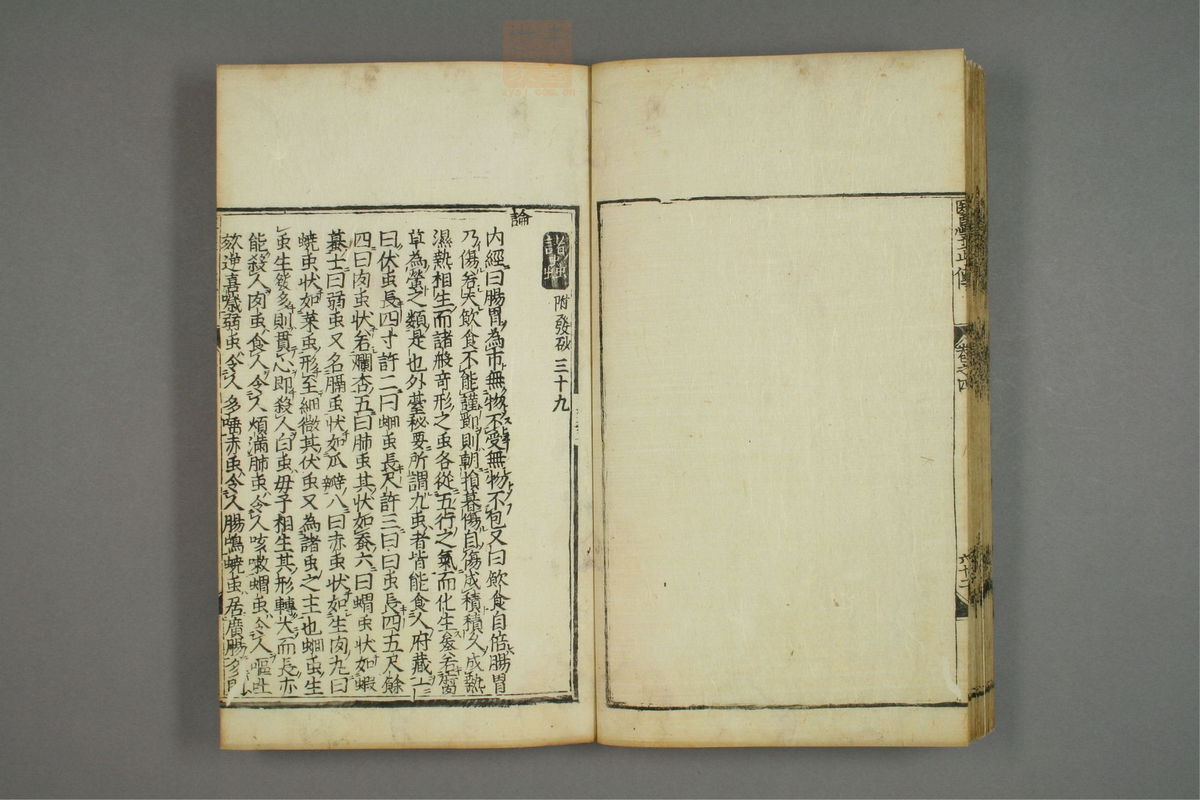 醫學正傳
卷之四
論
諸蟲
附發砂 三十九
内經曰腸胃為市無物不受無物不包又曰飲食自倍腸胃
乃傷若夫飲食不能謹節則朝損暮傷自傷成積積久成熱
濕熱相生而諸般竒形之虫各從五行之氣而化生矣若腐
草為螢之類是也外臺秘要所謂九虫者皆能食人府藏一
曰伏虫長四寸許二曰蛔虫長尺許三曰白虫長四五尺餘
四曰肉虫状若爛杏五曰肺虫其状如蚕六曰蝟虫状如蝦
蟇七曰弱虫又名膈虫状如瓜瓣八曰赤虫状如生肉九曰
蟯虫状如菜虫形至細微其伏虫又為諸虫之主也蛔虫生
虫生發多則貫心即殺人白虫毋子相生其形轉大而長亦
能殺人肉虫食人令人煩滿肺虫令人咳嗽蝟虫令人嘔吐
欬逆喜噦弱虫令人多唾赤虫令人腸鳴蟯虫居廣腸多則